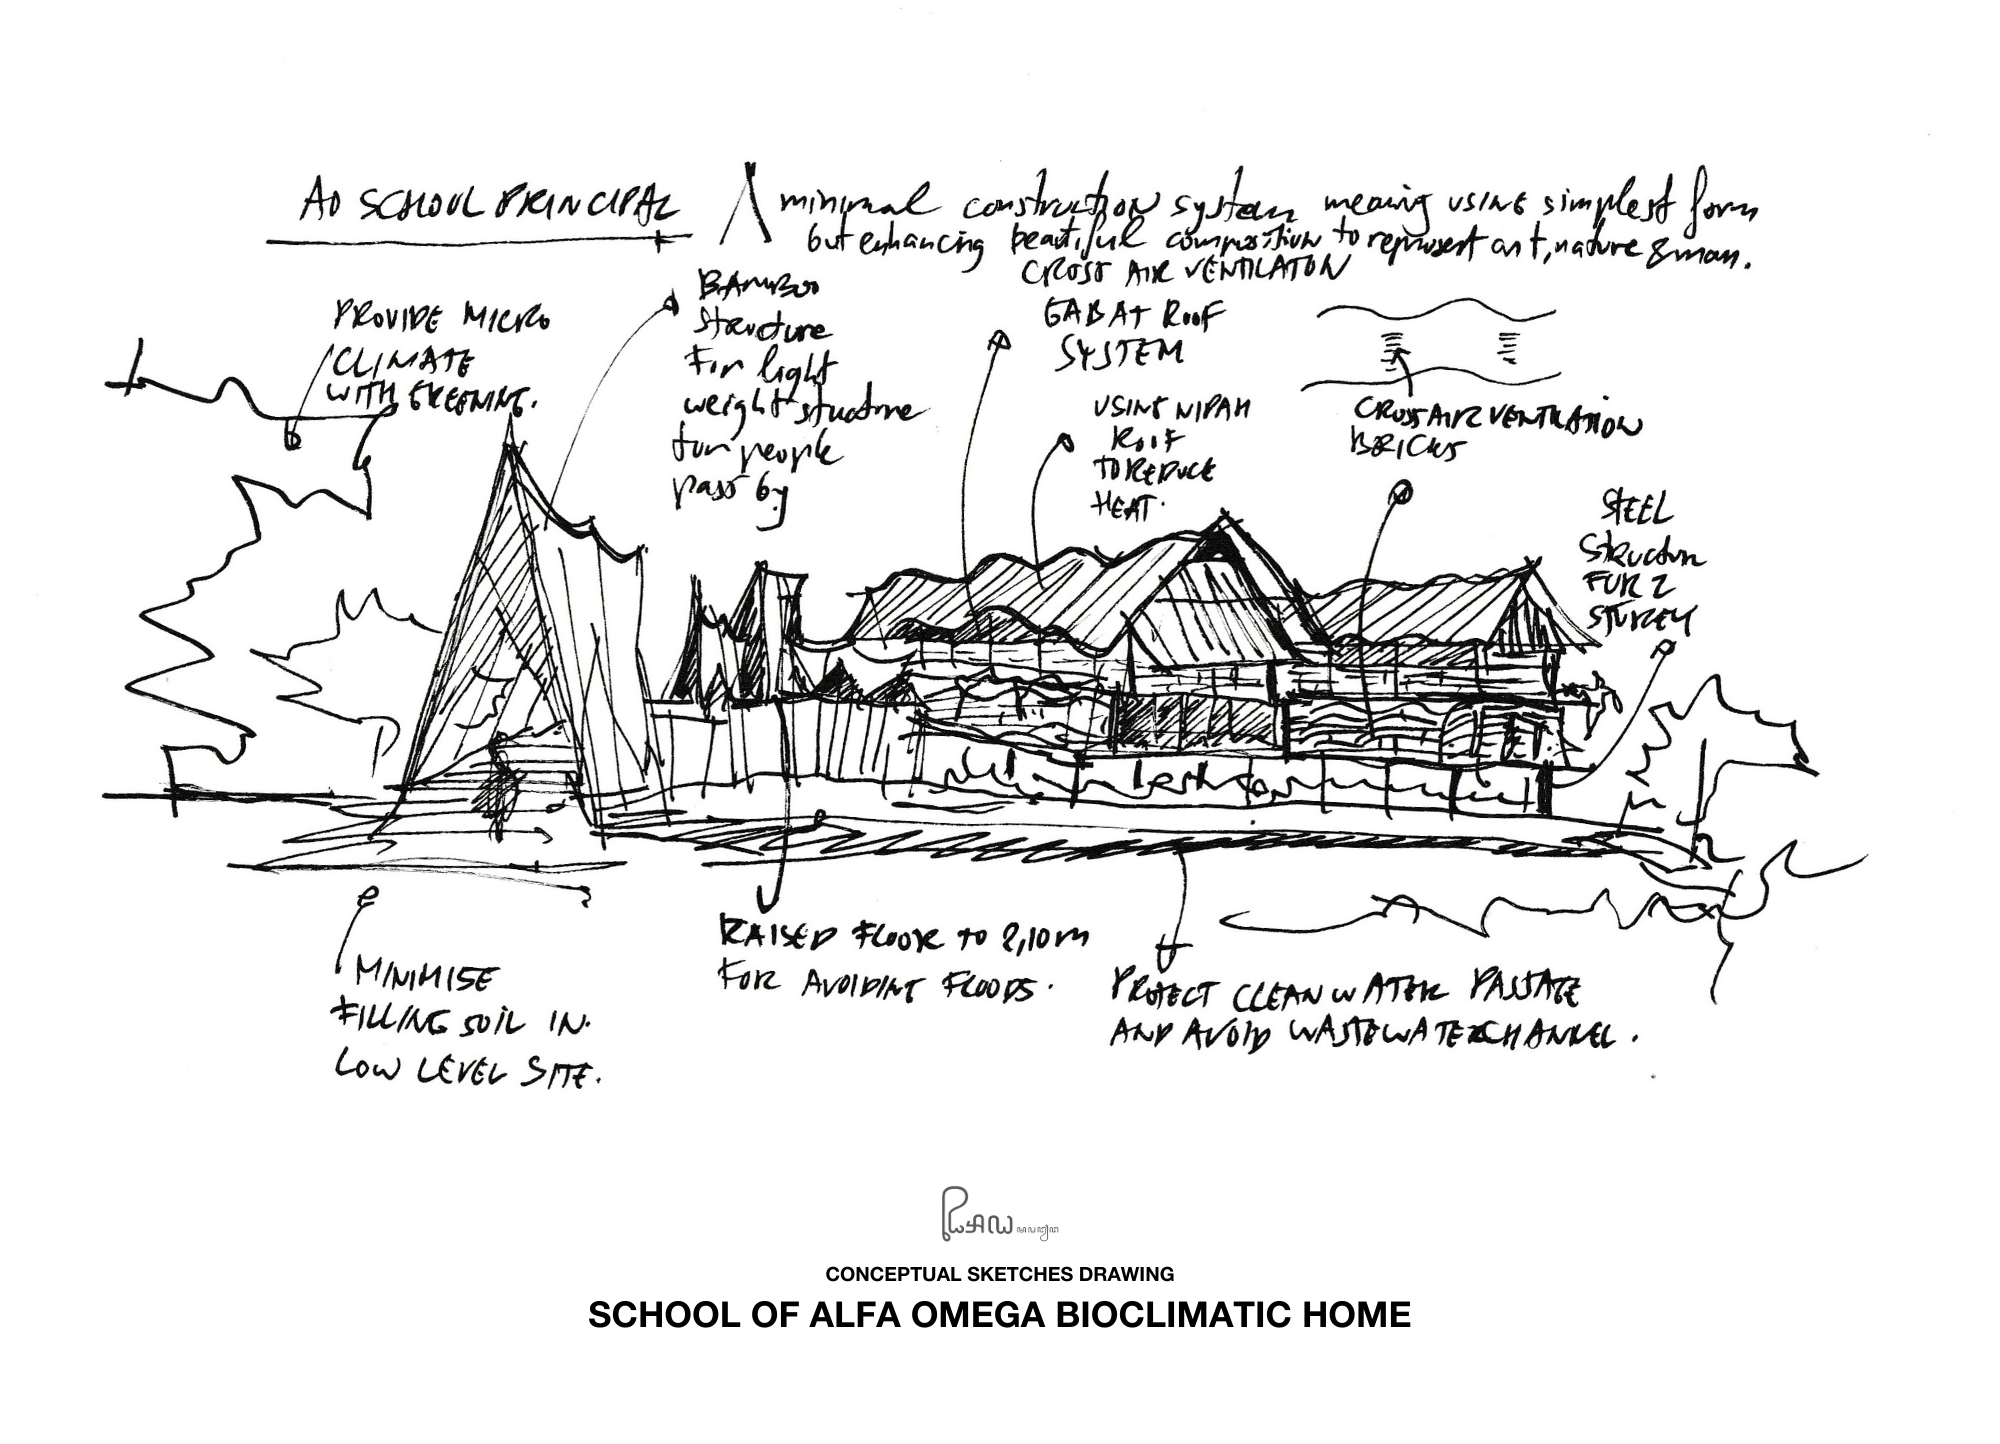 AO SCHOOL PRINCIPAL
A minimal construction system meaning USING simplest form
but enhancing beautiful composition to represent art, nature & man.
PROVIDE MICRO
CLIMATE
WITH GREENING.
BAMBOO
structure
For light
weight structure
for people
pass by
CROSS AIR VENTILATON
GABAT ROOF
SYSTEM
USING NIPAH
ROOF
TO REDUCE
HEAT.
CROSS AIR VENTILATION
BRICKS
STEEL
STRUCTUR
FUR 2
STOREY
MINIMISE
FILLING SOIL IN.
LOW LEVEL SITE.
RAISED FLOOR TO 2,10m
FOR AVOIDING FLOODS.
PROTECT CLEAN WATER PASSAGE
AND AVOID WASTEWATER CHANNEL.
CONCEPTUAL SKETCHES DRAWING
SCHOOL OF ALFA OMEGA BIOCLIMATIC HOME